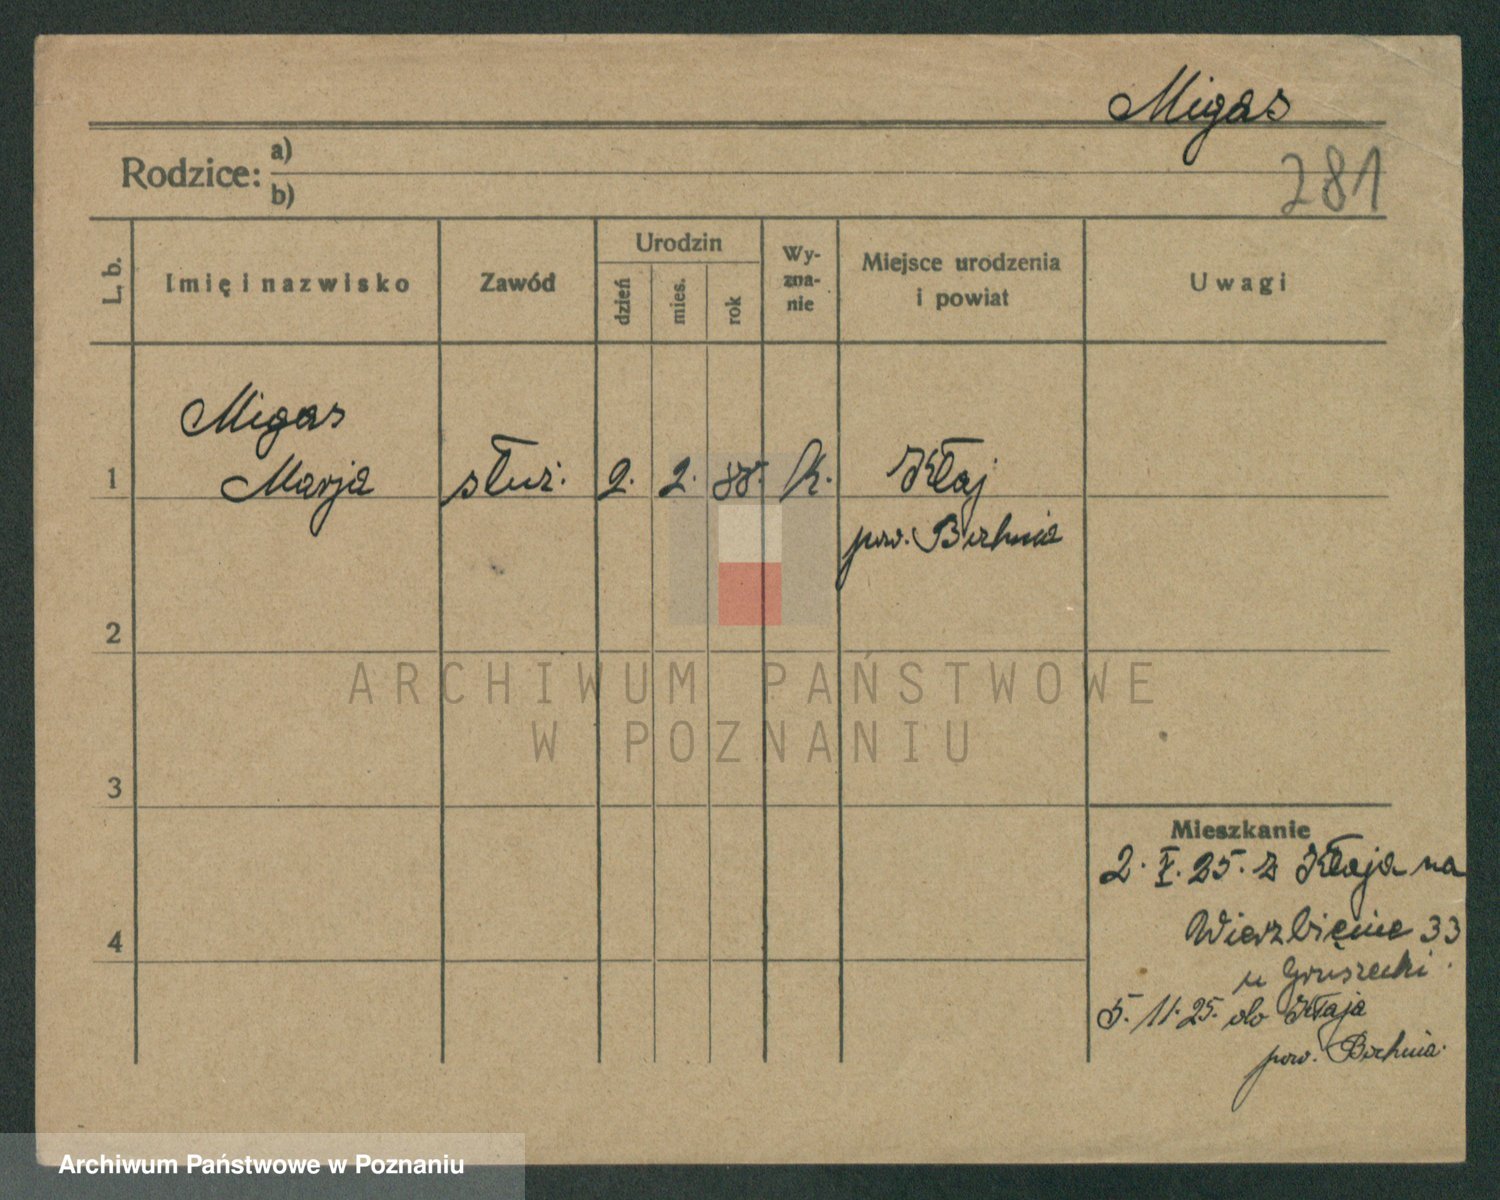 Migas
281
Rodzice: a)
b)
L. b.
Imię i nazwisko
Zawód
Urodzin
dzień
mies.
rok
Wy-
zna-
nie
Miejsce urodzenia
i powiat
Uwagi
Migas
1 Marja służ. 2. 2. 88. K. Kłaj
pow. Bochnia
2
ARCHIWUM PAŃSTWOWE
W POZNANIU
3
Mieszkanie
2. X. 25. z Kłaja na
4 Wierzbięcice 33
u Gruszecki
5. 11. 25. do Kłaja
pow. Bochnia.
Archiwum Państwowe w Poznaniu